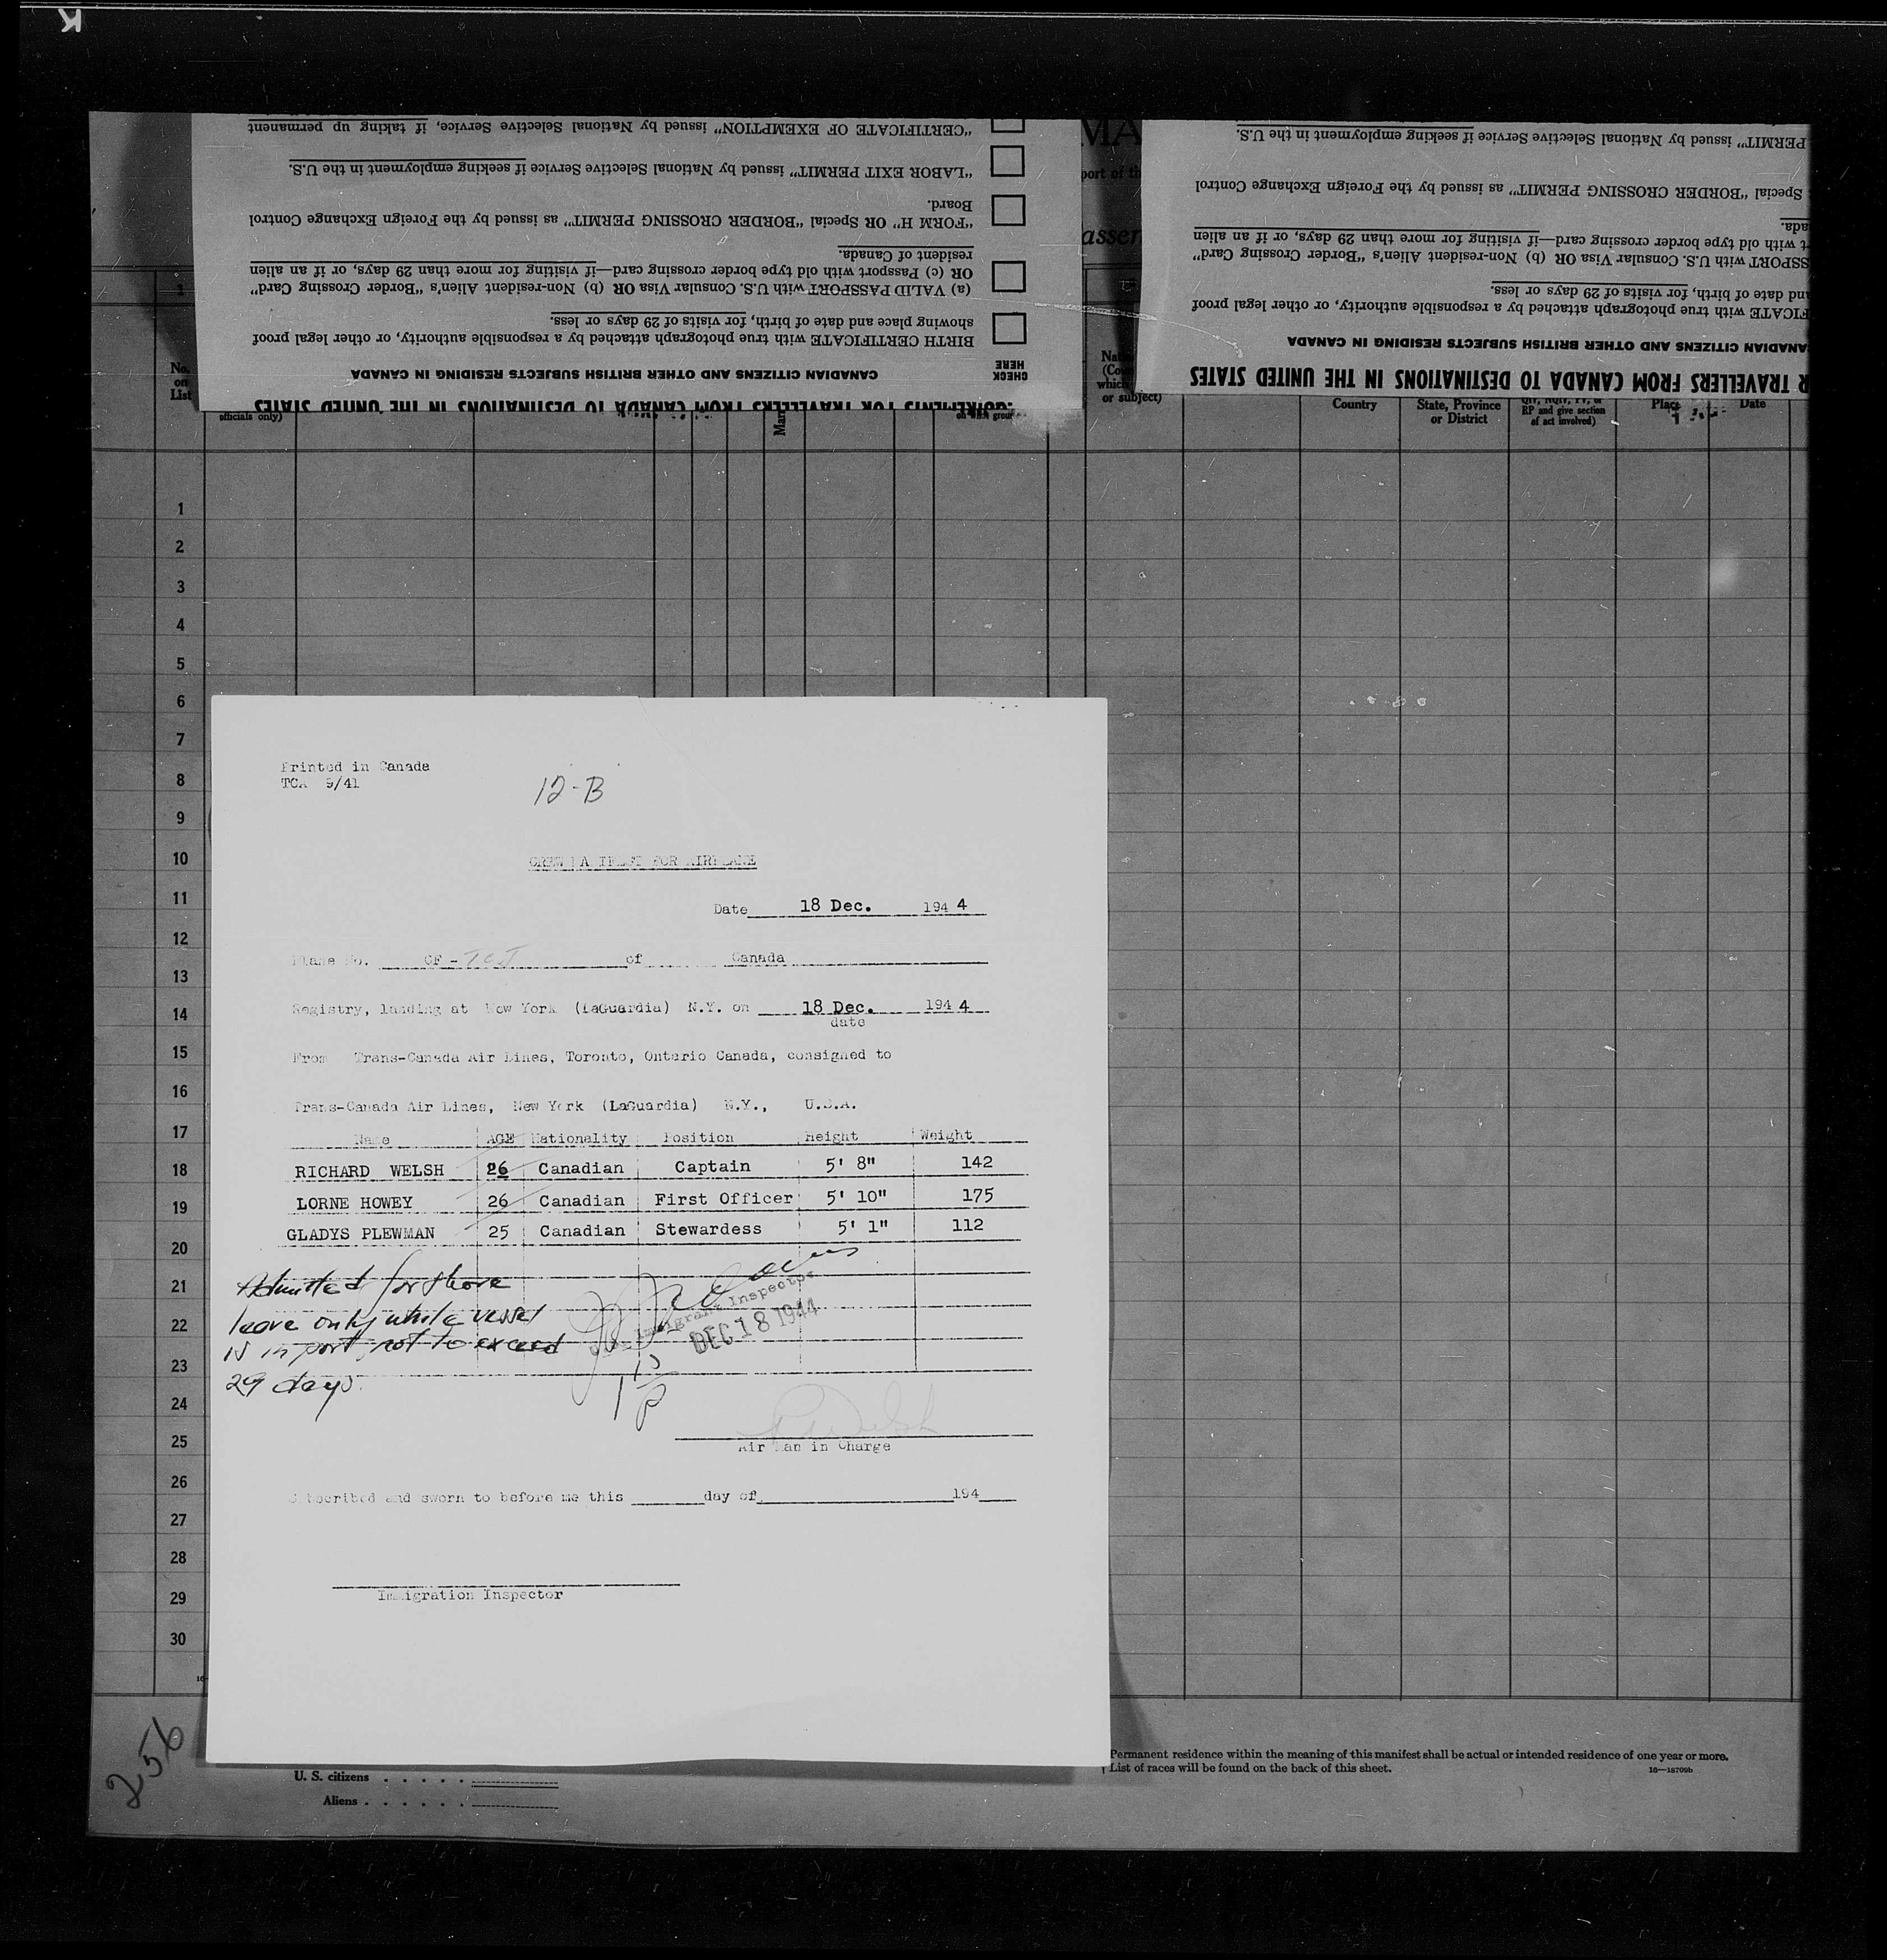 K
"CERTIFICATE OF EXEMPTION" issued by National Selective Service, if taking up permanent
"LABOR EXIT PERMIT" issued by National Selective Service if seeking employment in the U.S.
"FORM H" OR Special "BORDER CROSSING PERMIT" as issued by the Foreign Exchange Control
Board.
(a) VALID PASSPORT with U.S. Consular Visa OR (b) Non-resident Alien's "Border Crossing Card"
OR (c) Passport with old type border crossing card—if visiting for more than 29 days, or if an alien
resident of Canada.
BIRTH CERTIFICATE with true photograph attached by a responsible authority, or other legal proof
showing place and date of birth, for visits of 29 days or less.
CHECK
HERE
CANADIAN CITIZENS AND OTHER BRITISH SUBJECTS RESIDING IN CANADA
FOR TRAVELLERS FROM CANADA TO DESTINATIONS IN THE UNITED STATES
MA
port of th
assen
PERMIT" issued by National Selective Service if seeking employment in the U.S.
Special "BORDER CROSSING PERMIT" as issued by the Foreign Exchange Control
ada.
t with old type border crossing card—if visiting for more than 29 days, or if an alien
SSPORT with U.S. Consular Visa OR (b) Non-resident Alien's "Border Crossing Card"
nd date of birth, for visits of 29 days or less.
FICATE with true photograph attached by a responsible authority, or other legal proof
CANADIAN CITIZENS AND OTHER BRITISH SUBJECTS RESIDING IN CANADA
R TRAVELLERS FROM CANADA TO DESTINATIONS IN THE UNITED STATES
1
No.
on
List
officials only)
Marr
which
or subject)
Country
State, Province
or District
RP and give section
of act involved)
Place
Date
1
2
3
4
5
6
7
8
9
10
11
12
13
14
15
16
17
18
19
20
21
22
23
24
25
26
27
28
29
30
Printed in Canada
TCA 9/41
12-B
CREW MANIFEST FOR AIRPLANE
Date 18 Dec. 194 4
Plane No. CF - TCJ of Canada
Registry, landing at New York (LaGuardia) N.Y. on 18 Dec. 194 4
date
From Trans-Canada Air Lines, Toronto, Ontario Canada, consigned to
Trans-Canada Air Lines, New York (LaGuardia) N.Y., U.S.A.
Name AGE Nationality Position Height Weight
RICHARD WELSH 26 Canadian Captain 5' 8" 142
LORNE HOWEY 26 Canadian First Officer 5' 10" 175
GLADYS PLEWMAN 25 Canadian Stewardess 5' 1" 112
Admitted for shore
leave only while vessel
is in port, not to exceed
29 days.
Immigrant Inspector
DEC 18 1944
R Welsh
Air Man in Charge
Subscribed and sworn to before me this day of 194
Immigration Inspector
256
U. S. citizens
Aliens
Permanent residence within the meaning of this manifest shall be actual or intended residence of one year or more.
List of races will be found on the back of this sheet.
16—18709b